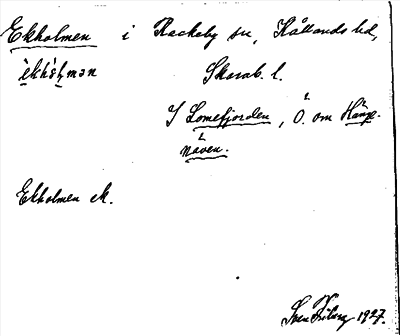 Ekholmen i Rackeby sn, Kållands hd,
èkhòl̥mən Skarab. l.
I Lomefjorden, Ö. om Hänge-
näven.
Ekholmen ek.
Sven 1927.